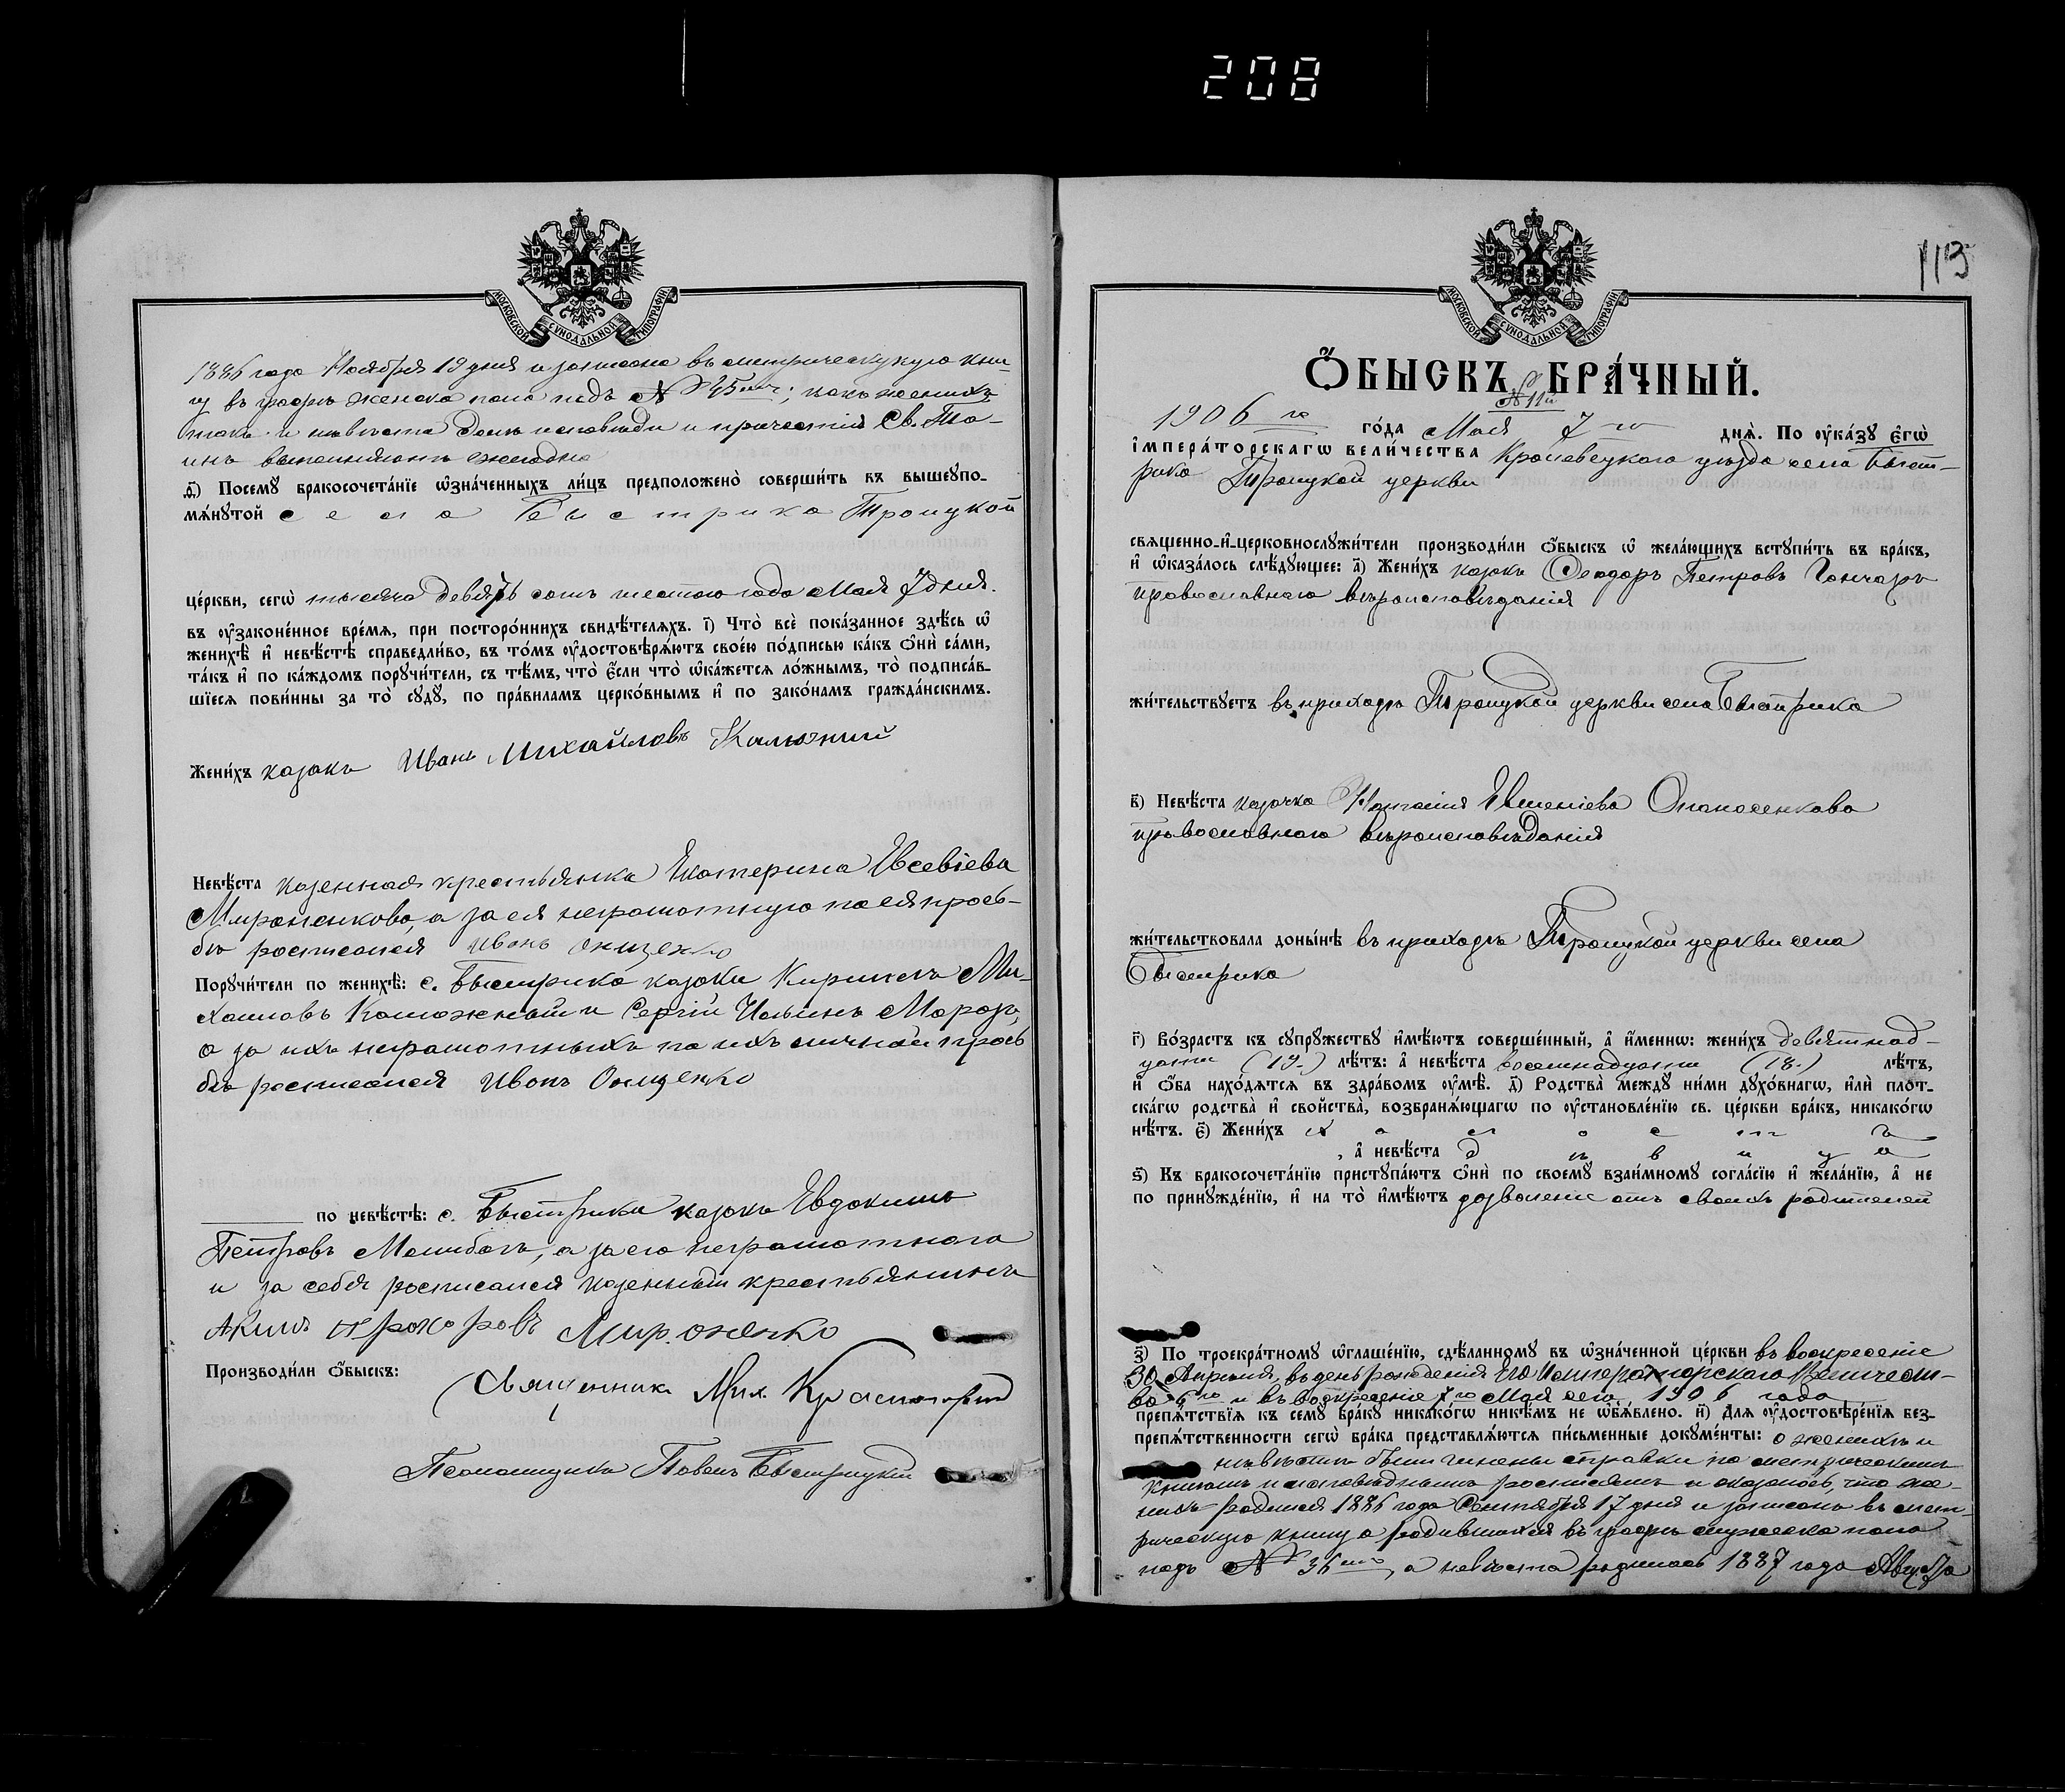 208
МОСКОВСКОЙ СѴНОДАЛЬНОЙ ТИПОГРАФІИ
1886 года Ноября 19 дня и записана въ метрическую кни-
гу въ графѣ женска пола подъ № 45мъ; какъ женихъ
такъ и невѣста долгъ исповѣди и причастія Св. Та-
инъ выполняютъ ежегодно
ѳ҃) Посемꙋ бракосочета́нїе ѡзна́ченныхъ ли́цъ предположено̀ соверши́ть въ вышеꙋпо-
мѧ́нꙋтой села Быстрика Троицкой
це́ркви, сегѡ̀ тысяча девять сотъ шестого года Мая 7 дня.
въ ᲂу҆законе́нное вре́мѧ, при посторо́ннихъ свидѣ́телѧхъ. і҃) Что̀ всѐ пока́занное здѣ́сь ѡ҆
женихѣ̀ и҆ невѣ́стѣ справедли́во, въ то́мъ ᲂу҆достовѣрѧ́ютъ свое́ю по́дписью ка́къ ѻ҆нѝ са́ми,
та́къ и҆ по ка́ждомъ порꙋчи́тели, съ тѣ́мъ, что̀ є҆́сли что̀ ѡ҆ка́жется ло́жнымъ, то̀ подписа́в-
шїесѧ пови́нны за то̀ сꙋдꙋ̀, по пра́виламъ церко́внымъ и҆ по зако́намъ гражда́нскимъ.
Жени́хъ казакъ Иванъ Михайловъ Калюжний
Невѣ́ста казенная крестьянка Екатерина Евсевіева
Мироненкова, а за ея неграмотную по ея прось-
бѣ росписался Иванъ Онищенко
Порꙋчи́тели по женихѣ̀: с. Быстрика казаки Кирилъ Ми-
хаиловъ Калюжный и Сергій Ильинъ Морозъ,
а за ихъ неграмотныхъ по ихъ личной прось
бѣ росписался Иванъ Онищенко
по невѣ́стѣ: с. Быстрика казакъ Евдокимъ
Петровъ, а за его неграмотнаго
и за себя росписался казенный крестьянинъ
Акимъ Прохоровъ Мироненко
Производи́ли ѻ҆́быскъ:
Священникъ Мих.
Псаломщикъ Павелъ Быстрицкій
113
МОСКОВСКОЙ СѴНОДАЛЬНОЙ ТИПОГРАФІИ
ѺБЫСКЪ БРА́ЧНЫЙ.
№ 11й
1906 го го́да Мая 7го днѧ̀. По ᲂу҆ка́зꙋ є҆гѡ̀
і҆мпера́торскагѡ вели́чества Кролевецкаго уѣзда села Быст-
рика Троицкой церкви
свѧщенно-и҆-церковнослꙋжи́тели производи́ли ѻ҆́быскъ ѡ҆ жела́ющихъ встꙋпи́ть въ бра́къ,
и҆ ѡ҆каза́лось слѣ́дꙋющее: а҃) Жени́хъ казакъ Ѳеодоръ Петровъ Гончаръ
православнаго вѣроисповѣданія
жи́тельствꙋетъ въ приходѣ Троицкой церкви села Быстрика
в҃) Невѣ́ста казачка Наталія Евменіева Опанасенкова
православнаго вѣроисповѣданія
жи́тельствовала доны́нѣ въ приходѣ Троицкой церкви села
Быстрика
г҃) Во́зрастъ къ сꙋпрꙋжествꙋ и҆мѣ́ютъ соверше́нный, а҆ и҆́меннѡ: жени́хъ девятнад-
цати (19.) лѣ́тъ: а҆ невѣ́ста восемнадцати (18.) лѣ́тъ,
и҆ ѻ҆́ба нахо́дѧтсѧ въ здра́вомъ ᲂу҆мѣ̀. д҃) Родства̀ междꙋ̀ ни́ми дꙋхо́внагѡ, и҆лѝ пло́т-
ска́гѡ родства̀ и҆ сво́йства̀, возбранѧ́ющагѡ по ᲂу҆становле́нїю св. це́ркви бра́къ, никако́гѡ
нѣ́тъ. є҃) Жени́хъ холостъ
, а҆ невѣ́ста дѣвица
ѕ҃) Къ бракосочета́нїю пристꙋпа́ютъ ѻ҆нѝ по своемꙋ̀ взаи́мномꙋ согла́сїю и҆ жела́нїю, а҆ не
по принꙋжде́нїю, и҆ на то̀ и҆мѣ́ютъ дозволеніе отъ своихъ родителей
з҃) По троекра́тномꙋ ѡ҆глаше́нїю, сдѣ́ланномꙋ въ ѡ҆зна́ченной це́ркви въ воскресеніе
30 Апрѣля, въ день рожденія Его Императорскаго Величест-
ва 6го и въ воскресеніе 7го Мая сего 1906 года
препѧ́тствїѧ къ семꙋ̀ бра́кꙋ никако́гѡ никѣ́мъ не ѡ҆бъѧ́влено. и҃) Длѧ ᲂу҆достовѣре́нїѧ без-
препѧ́тственности сегѡ̀ бра́ка представлѧ́ютсѧ пи́сьменные докꙋме́нты: о женихѣ и
невѣстѣ были чинены справки по метрическимъ
книгамъ и исповѣднымъ росписямъ и оказалось, что же-
нихъ родился 1886 года Сентября 17 дня и записанъ въ мет-
рическую книгу о родившихся въ графѣ мужеска пола
подъ № 36мъ, а невѣста родилась 1887 года Августа